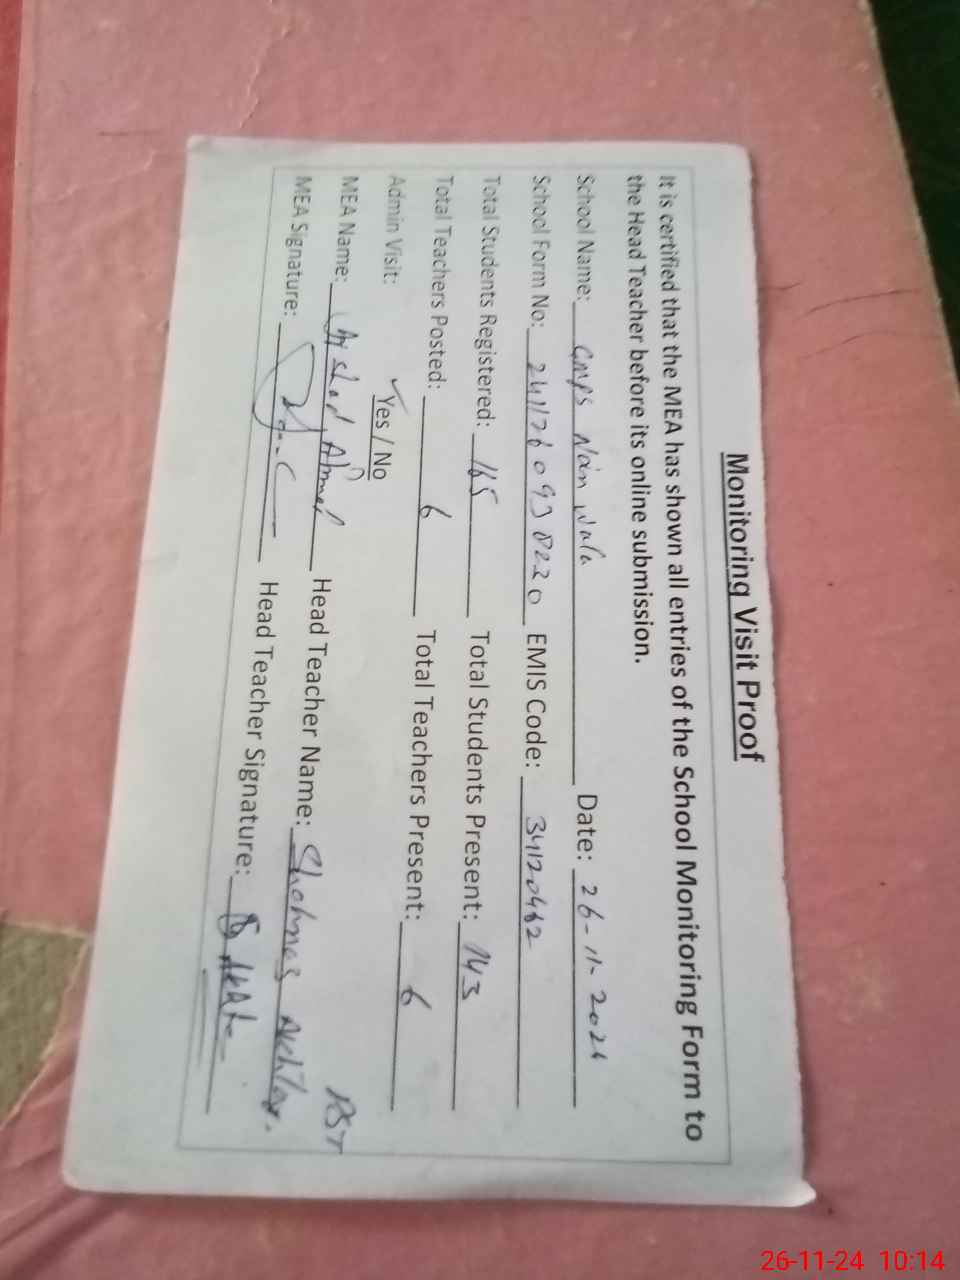 Monitoring Visit Proof
It is certified that the MEA has shown all entries of the School Monitoring Form to
the Head Teacher before its online submission.
School Name: GMPS Nan Wala Date: 26-11-2024
School Form No: EMIS Code: 34120462
Total Students Registered: 165 Total Students Present: 143
Total Teachers Posted: 6 Total Teachers Present: 6
Admin Visit: ✓Yes / No
PST
MEA Name: Arshad Ahmed Head Teacher Name: Shahnaz Akhtar.
MEA Signature: Head Teacher Signature:
26-11-24 10:14